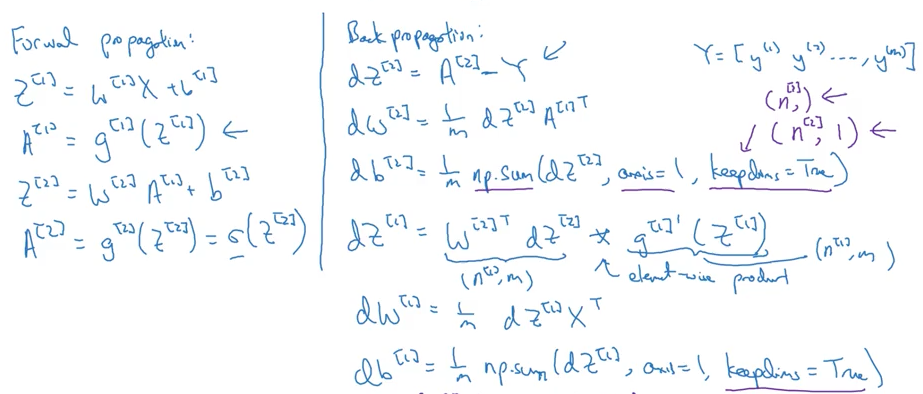 Forwal propagation:
Z^[1] = W^[1] X + b^[1]
A^[1] = g^[1](Z^[1]) ←
Z^[2] = W^[2] A^[1] + b^[2]
A^[2] = g^[2](Z^[2]) = σ(Z^[2])
Back propagation:
dZ^[2] = A^[2] - Y
dW^[2] = 1/m dZ^[2] A^[1]T
db^[2] = 1/m np.sum(dZ^[2], axis=1, keepdims=True)
dZ^[1] = W^[2]T dZ^[2] * g^[1]'(Z^[1])
(n^[1], m) ↖ element-wise product (n^[1], m)
dW^[1] = 1/m dZ^[1] X^T
db^[1] = 1/m np.sum(dZ^[1], axis=1, keepdims=True)
Y = [y^(1) y^(2) ..., y^(m)]
(n^[2],) ←
(n^[2], 1) ←